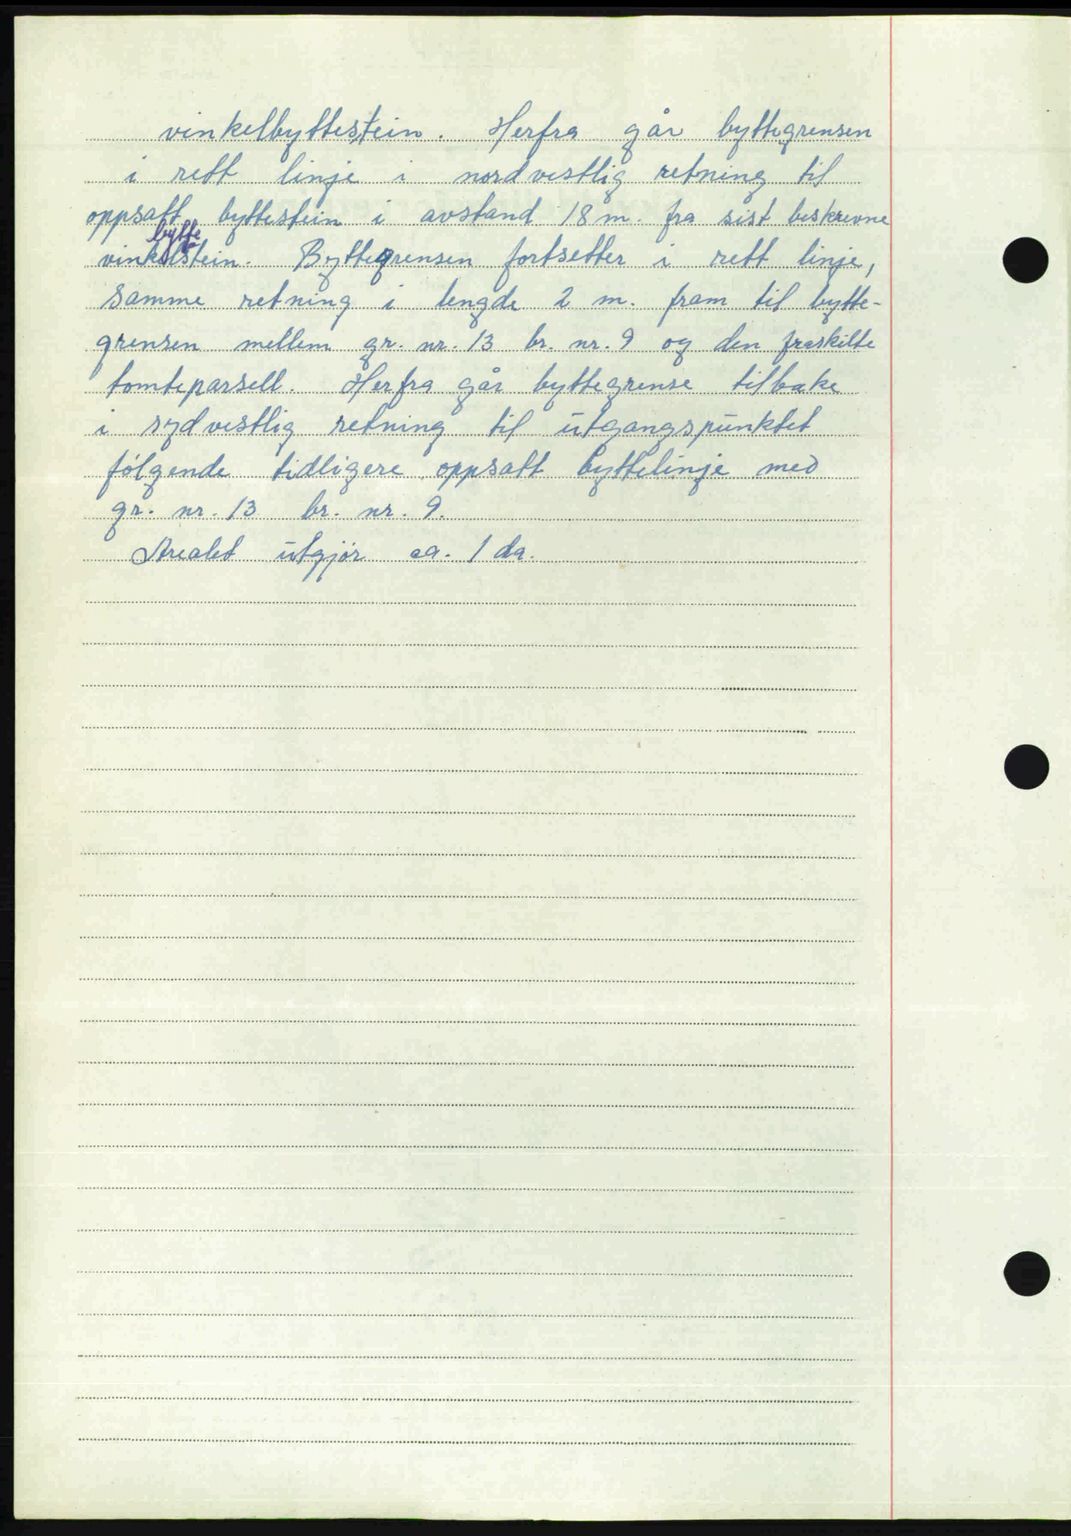 vinkelbyttestein. Herfra går byttegrensen
i rett linje i nordvestlig retning til
oppsatt byttestein i avstand 18 m. fra sist beskrevne
bytte
vinkelstein. Byttegrensen fortsetter i rett linje,
samme retning i lengde 2 m. fram til bytte-
grensen mellem gr. nr. 13 br. nr. 9 og den fraskilte
tomteparsell. Herfra går byttegrense tilbake
i sydvestlig retning til utgangspunktet
følgende tidligere oppsatt byttelinje med
gr. nr. 13 br. nr. 9.
Arealet utgjør ca. 1 da.